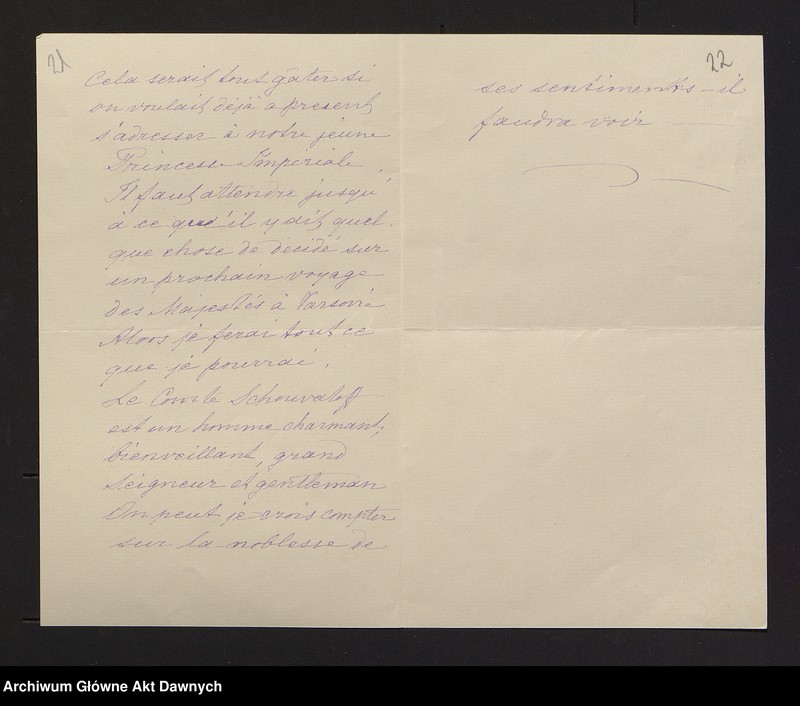 21
Cela serait tout gâter si
on voulait déjà a present
s'adresser à notre jeune
Princesse Impériale.
Il faut attendre jusqu'
à ce qu'il y ait quel-
que chose de décidé sur
un prochain voyage
des Majestés à Varsovie
Alors je ferai tout ce
que je pourrai.
Le Comte Schouvaloff
est un homme charmant,
bienveillant, grand
Seigneur et gentleman
On peut je crois compter
sur la noblesse de
22
ses sentiments – il
faudra voir
Archiwum Główne Akt Dawnych